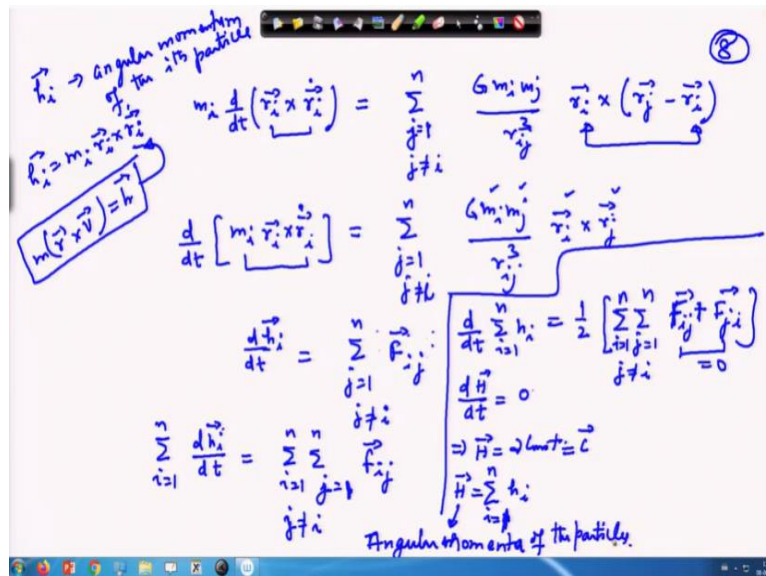 8
h⃗ᵢ → angular momentum
of the ith particle
h⃗ᵢ = mᵢ r⃗ᵢ × ṙ⃗ᵢ
m(r⃗ × V⃗) = h⃗
mᵢ d/dt (r⃗ᵢ × ṙ⃗ᵢ) = Σ_{j=1, j≠i}^{n} G mᵢ mⱼ / rᵢⱼ³ r⃗ᵢ × (r⃗ⱼ - r⃗ᵢ)
d/dt [mᵢ r⃗ᵢ × ṙ⃗ᵢ] = Σ_{j=1, j≠i}^{n} G mᵢ mⱼ / rᵢⱼ³ r⃗ᵢ × r⃗ⱼ
dh⃗ᵢ/dt = Σ_{j=1, j≠i}^{n} F⃗ᵢⱼ
Σ_{i=1}^{n} dh⃗ᵢ/dt = Σ_{i=1}^{n} Σ_{j=1, j≠i}^{n} F⃗ᵢⱼ
d/dt Σ_{i=1}^{n} hᵢ = 1/2 [Σ_{i=1}^{n} Σ_{j=1, j≠i}^{n} F⃗ᵢⱼ + F⃗ⱼᵢ]
= 0
dH⃗/dt = 0
⇒ H⃗ = = C⃗
H⃗ = Σ_{i=1}^{n} hᵢ
Angular Momenta of the particles.